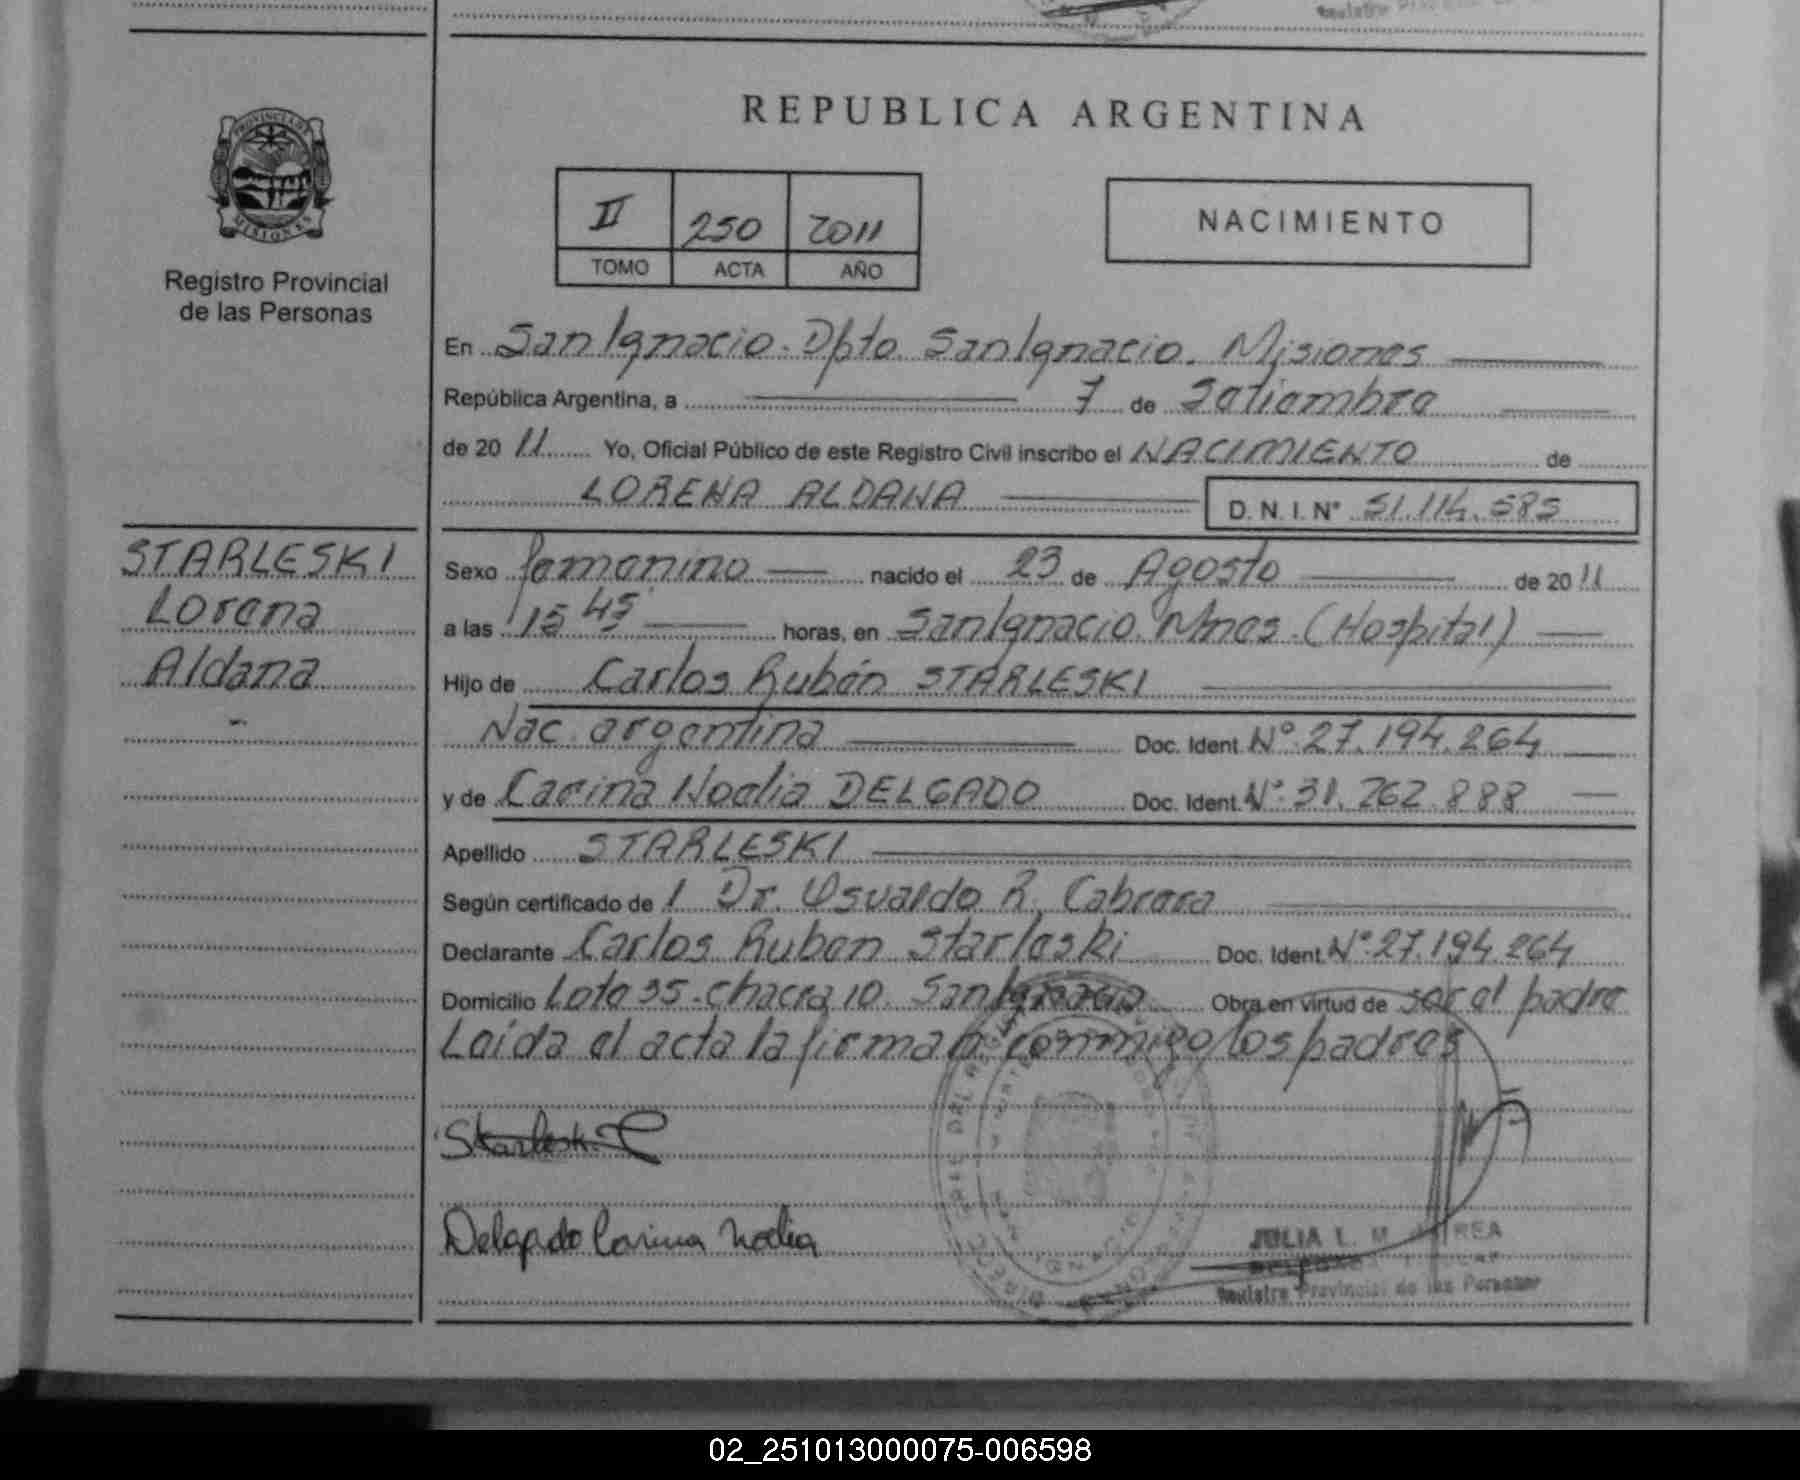 REPUBLICA ARGENTINA
PROVINCIA DE
MISIONES
Registro Provincial
de las Personas
II 250 2011
TOMO ACTA AÑO
NACIMIENTO
En San Ignacio. Dpto San Ignacio. Misiones
República Argentina, a 7 de Setiembre
de 20 11 Yo, Oficial Público de este Registro Civil inscribo el NACIMIENTO de
LORENA ALDANA D. N. I. N° 51.114.585
STARLESKI
Lorena
Aldana
Sexo femenino nacido el 23 de Agosto de 20 11
a las 15 45 horas, en San Ignacio Mnes. (Hospital)
Hijo de Carlos Rubén STARLESKI
Nac. argentina Doc. Ident. N° 27.194.264
y de Carina Noelia DELGADO Doc. Ident. N° 31.262.888
Apellido STARLESKI
Según certificado de 1 Dr. Osvaldo R. Cabrera
Declarante Carlos Ruben Starleski Doc. Ident. N° 27.194.264
Domicilio Lote 35 - chacra 10. San Ignacio Obra en virtud de ser el padre
Leida el acta la firman conmigo los padres
Starleski C
Delgado Carina Noelia
JULIA L. M.
Registro Provincial de las Personas
02_251013000075-006598